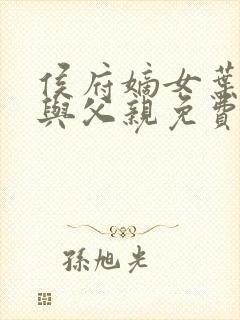 侯府嫡女葉
與父親免費
孫旭光